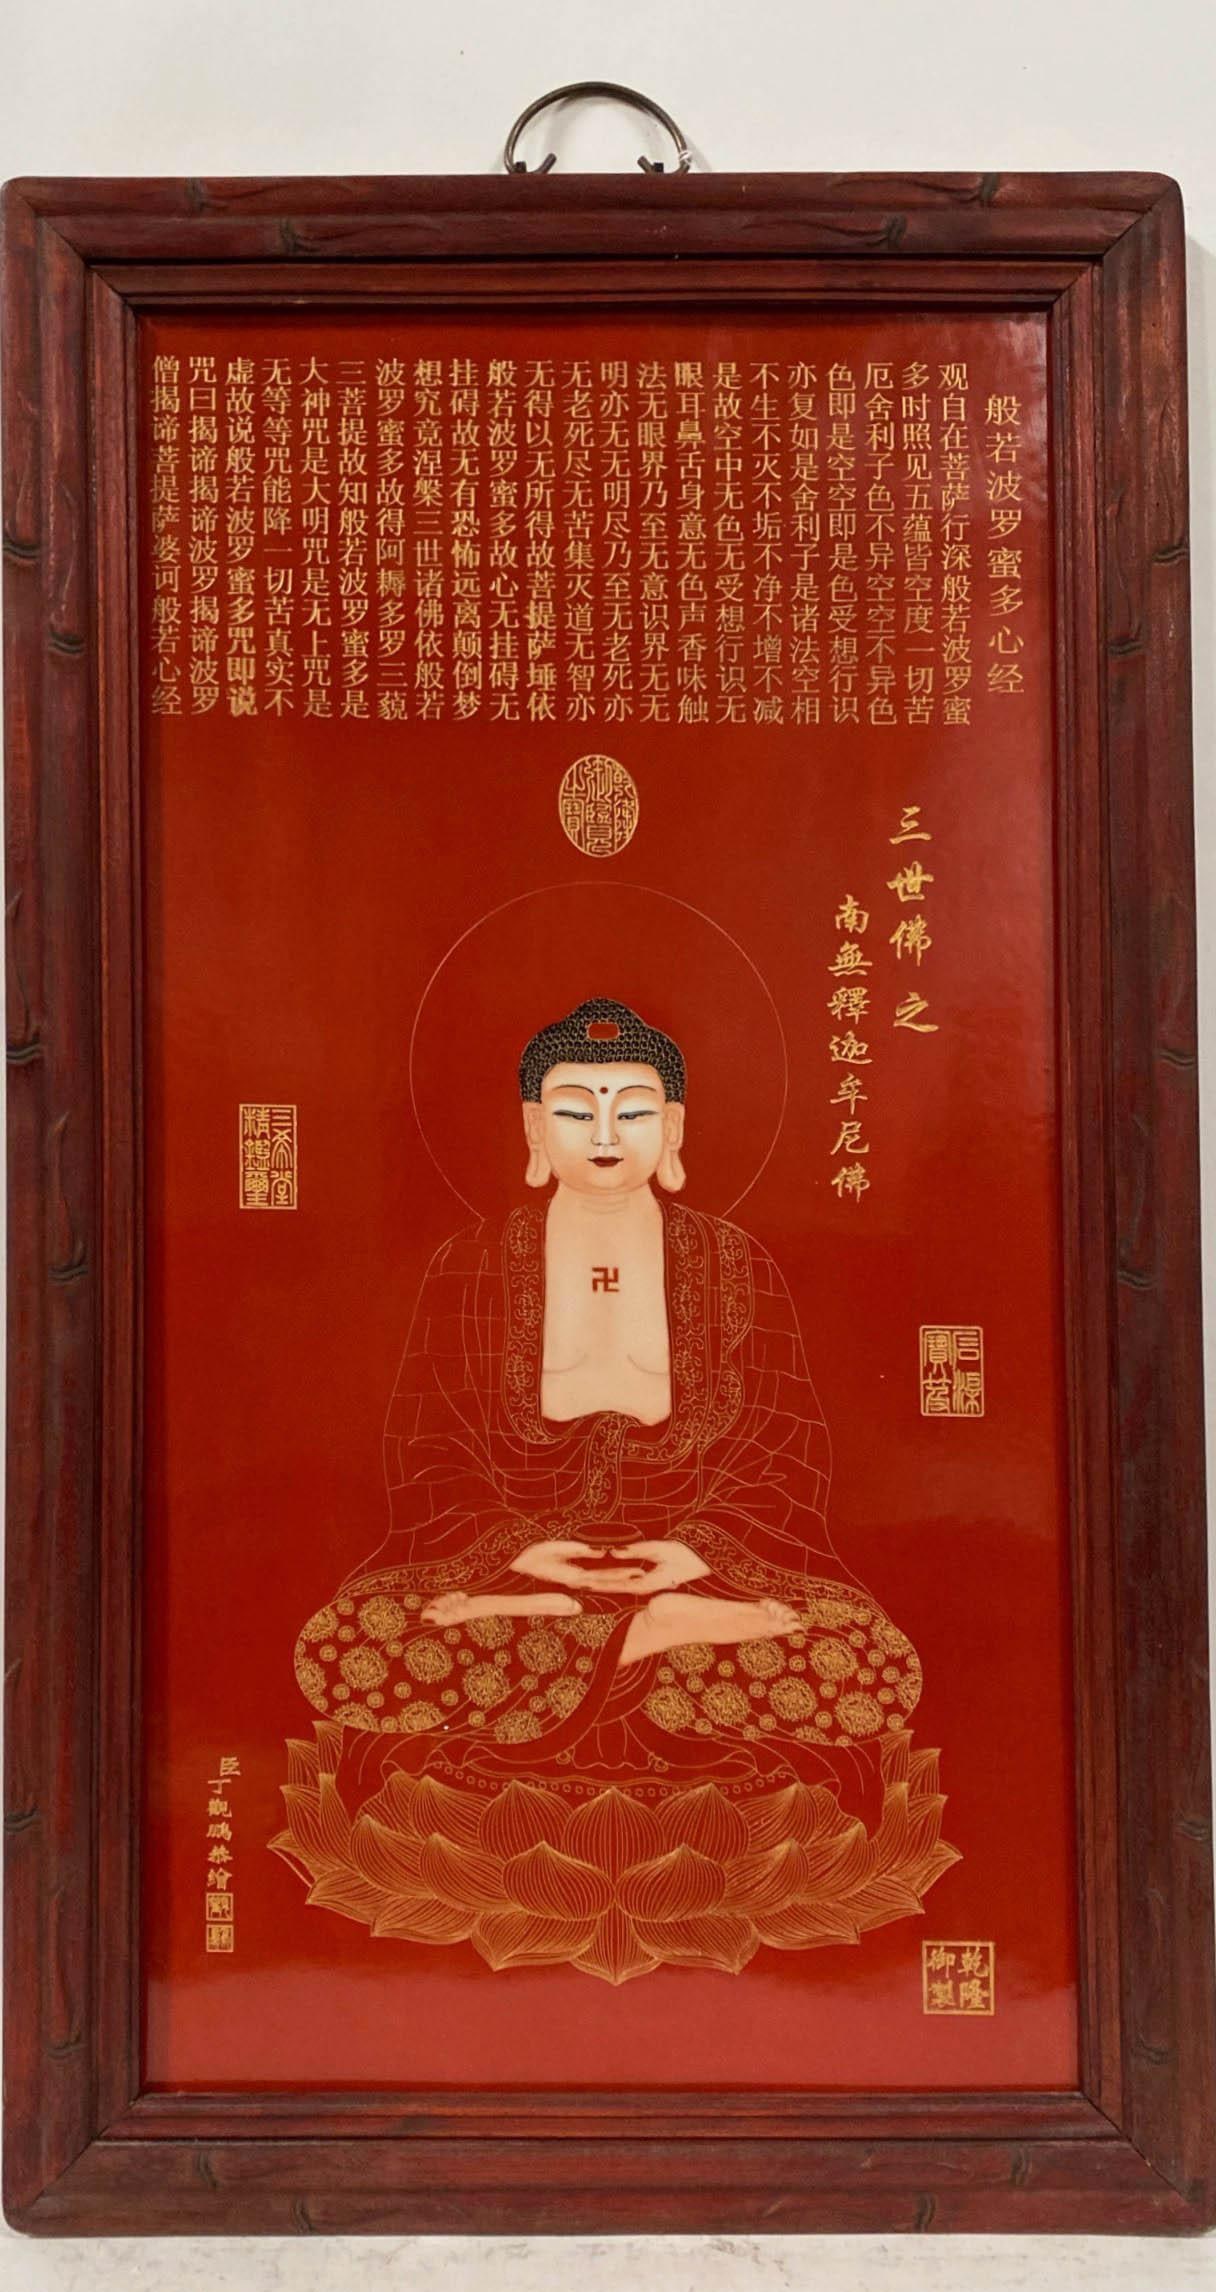 般若波罗蜜多心经
观自在菩萨行深般若波罗蜜
多时照见五蕴皆空度一切苦
厄舍利子色不异空空不异色
色即是空空即是色受想行识
亦复如是舍利子是诸法空相
不生不灭不垢不净不增不减
是故空中无色无受想行识无
眼耳鼻舌身意无色声香味触
法无眼界乃至无意识界无无
明亦无无明尽乃至无老死亦
无老死尽无苦集灭道无智亦
无得以无所得故菩提萨埵依
般若波罗蜜多故心无挂碍无
挂碍故无有恐怖远离颠倒梦
想究竟涅槃三世诸佛依般若
波罗蜜多故得阿耨多罗三藐
三菩提故知般若波罗蜜多是
大神咒是大明咒是无上咒是
无等等咒能降一切苦真实不
虚故说般若波罗蜜多咒即说
咒曰揭谛揭谛波罗揭谛波罗
僧揭谛菩提萨婆诃般若心经
三世佛之
南無釋迦牟尼佛
三希堂
精鑑璽
卍
臣丁觀鵬恭繪
乾隆
御製